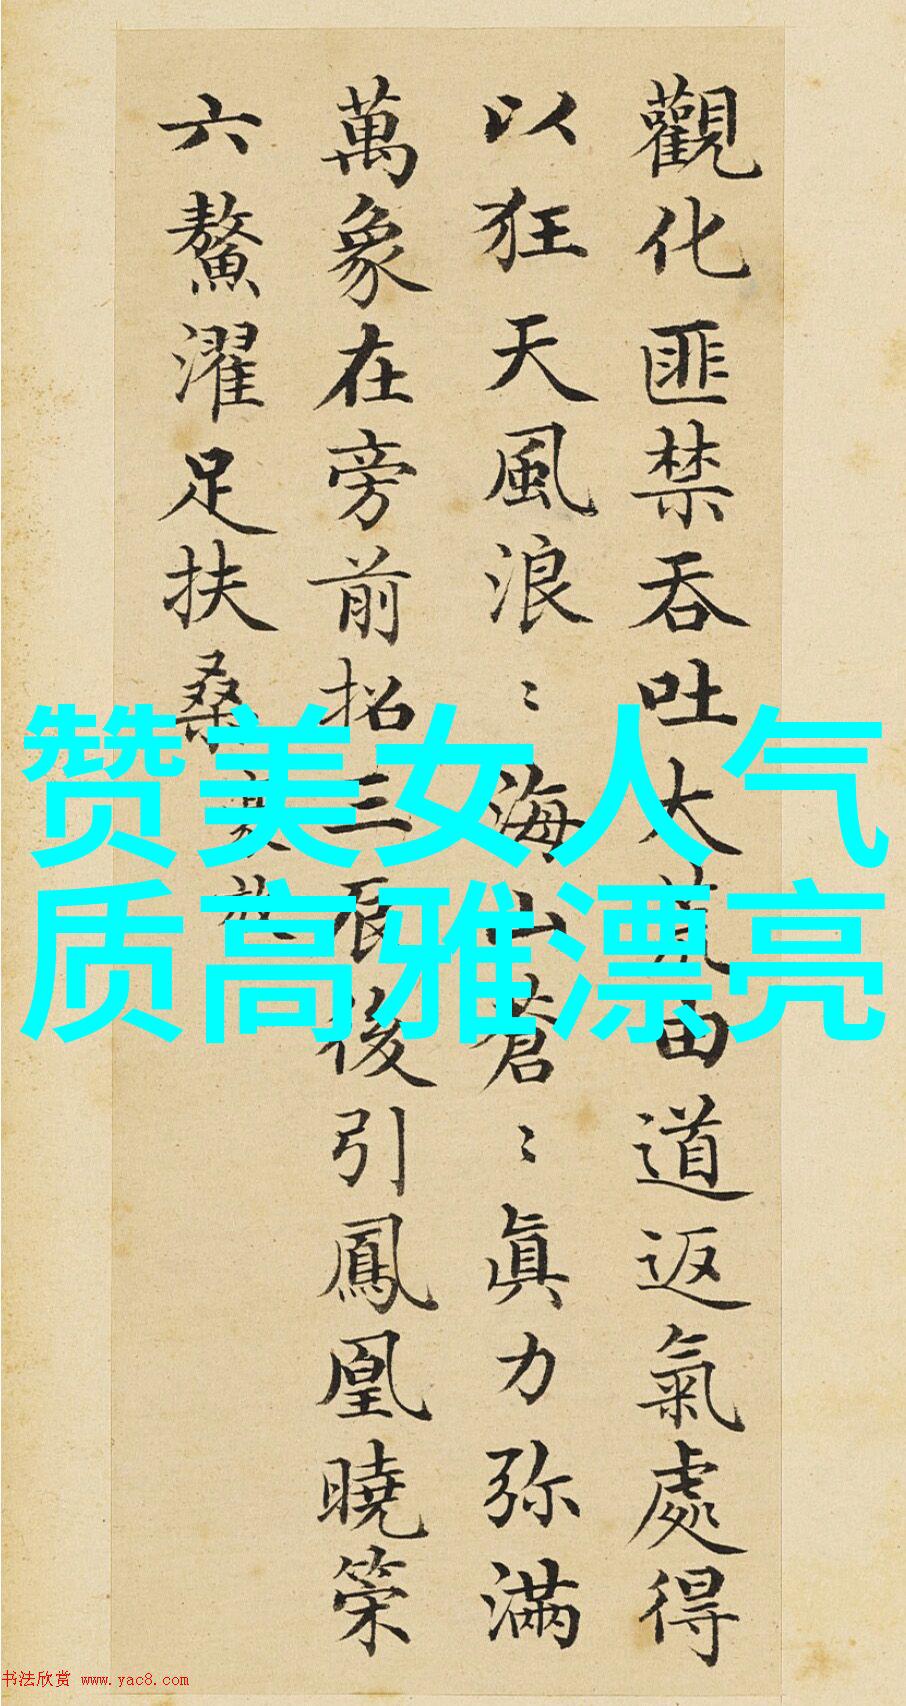 觀化匪禁吞吐大荒由道返氣處得
以狂天風浪〻海山蒼〻眞力弥滿
萬象在旁前招三辰後引鳳凰曉策
六鰲濯足扶桑
赞美女人气
质高雅漂亮
书法欣赏 www.yac8.com